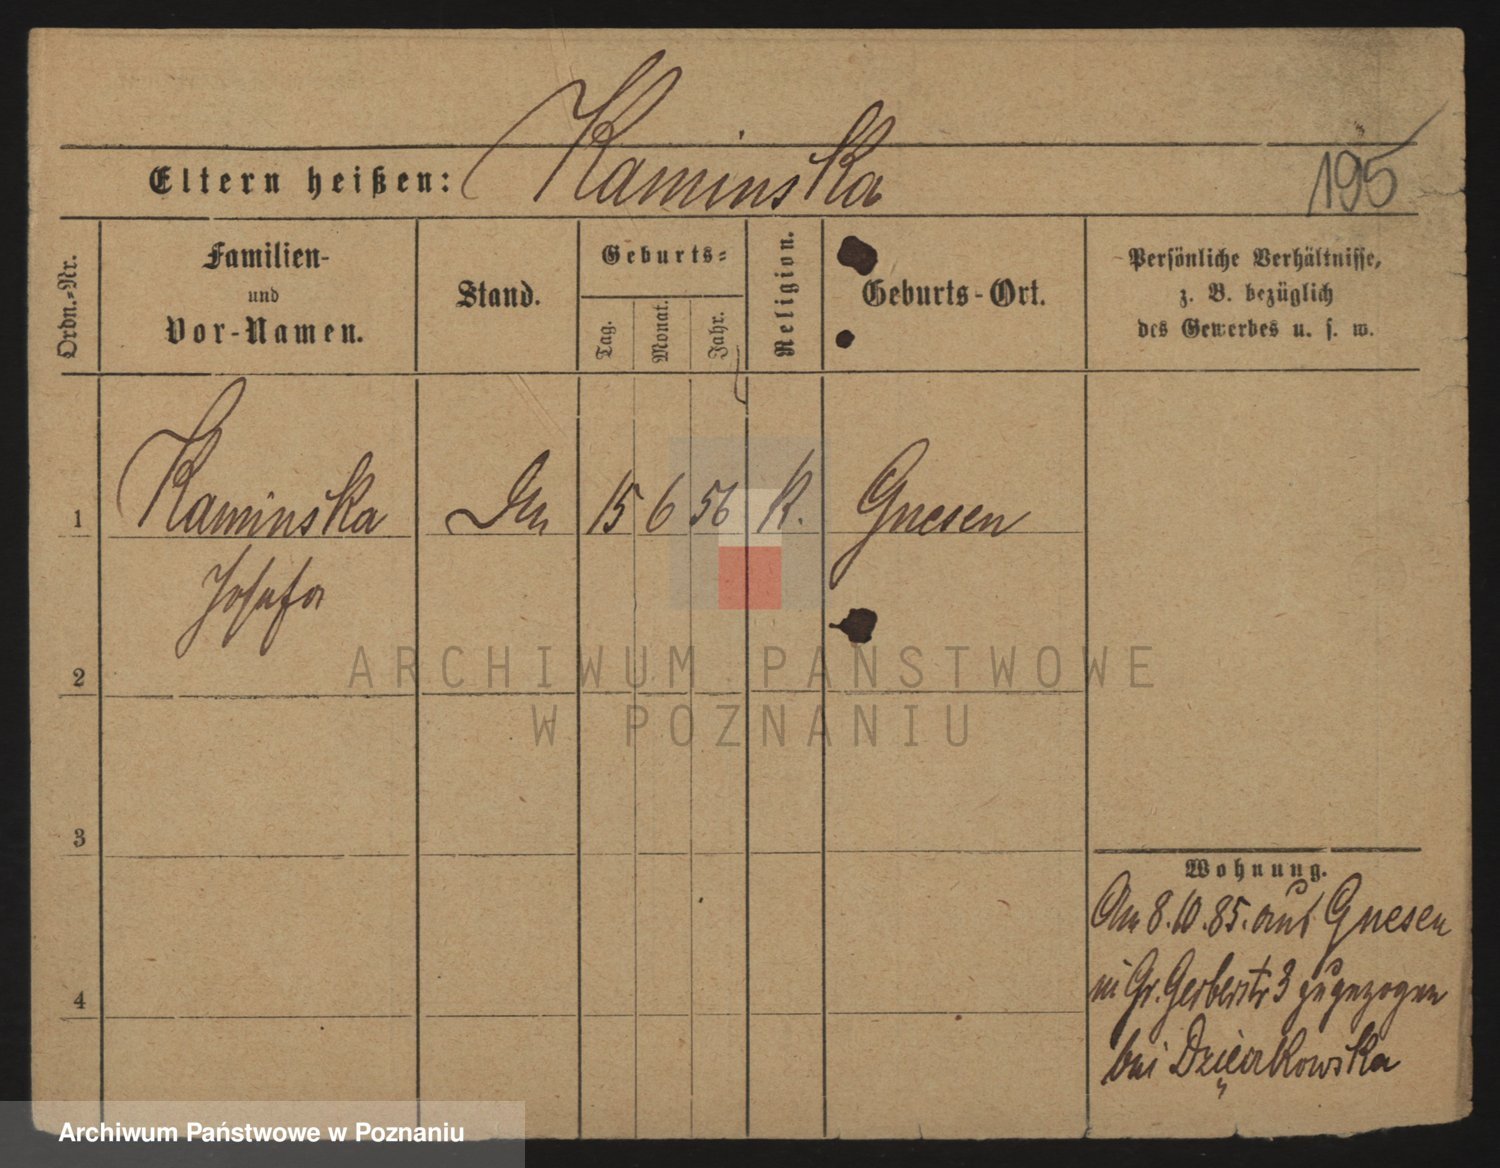 Kaminska
Eltern heißen:
195
Ordn.-Nr.
Familien-
und
Vor-Namen.
Stand.
Geburts-
Tag.
Monat.
Jahr.
Religion.
Geburts-Ort.
Persönliche Verhältnisse,
z. B. bezüglich
des Gewerbes u. s. w.
1 Kaminska 15 6 56 K. Gnesen
Josefa
2
3
4
Wohnung.
Am 8.10.85. aus Gnesen
in Gr. Gerberstr 3 zugezogen
bei
ARCHIWUM PANSTWOWE
W POZNANIU
Archiwum Państwowe w Poznaniu